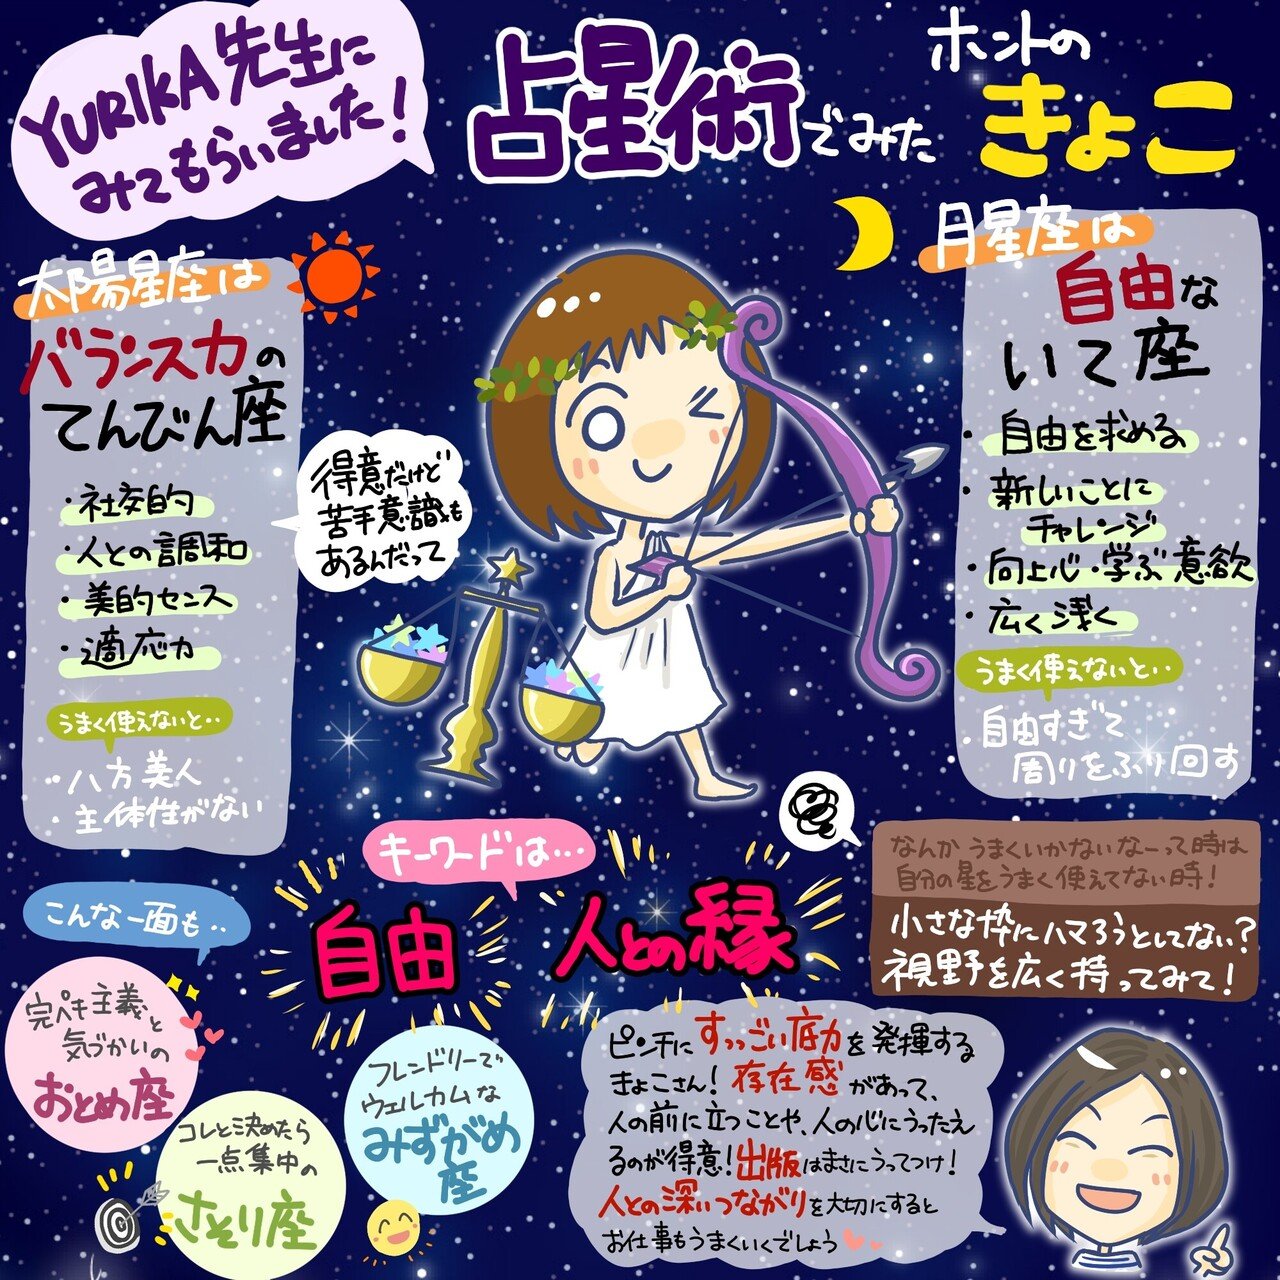 YURIKA先生に
みてもらいました!
占星術でみた
ホントの
きょこ
太陽星座は
バランス力の
てんびん座
・社交的
・人との調和
・美的センス
・適応力
うまく使えないと‥
・八方美人
・主体性がない
得意だけど
苦手意識も
あるんだって
月星座は
自由な
いて座
・自由を求める
・新しいことに
チャレンジ
・向上心・学ぶ意欲
・広く浅く
うまく使えないと‥
・自由すぎて
周りをふり回す
キーワードは…
自由
人との縁
なんかうまくいかないなーって時は
自分の星をうまく使えてない時!
小さな枠にハマろうとしてない?
視野を広く持ってみて!
こんな一面も‥
完ペキ主義と
気づかいの
おとめ座
コレと決めたら
一点集中の
さそり座
フレンドリーで
ウェルカムな
みずがめ
座
ピンチにすっっごい底力を発揮する
きょこさん!存在感があって、
人の前に立つことや、人の心にうったえ
るのが得意!出版はまさにうってつけ!
人との深いつながりを大切にすると
お仕事もうまくいくでしょう